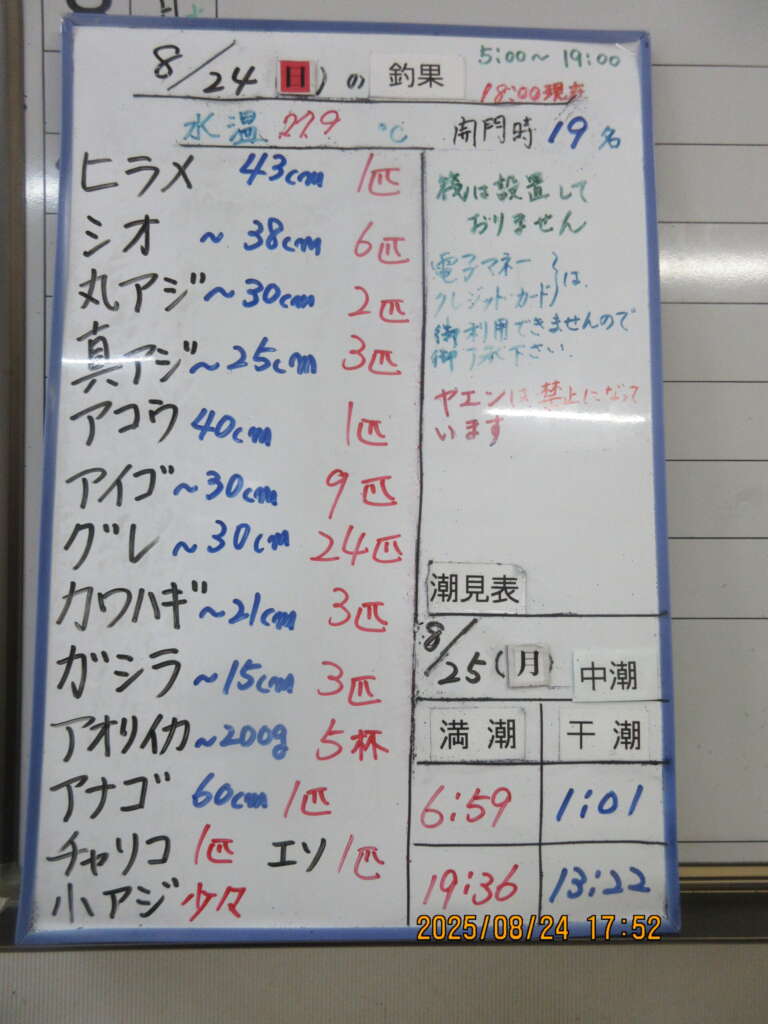 8/24(日)の 釣果 5:00～19:00
18:00現在
水温 27.9 ℃ 開門時 19名
ヒラメ 43cm 1匹
シオ ～38cm 6匹
丸アジ～30cm 2匹
真アジ～25cm 3匹
アコウ 40cm 1匹
アイゴ～30cm 9匹
グレ～30cm 24匹
カワハギ～21cm 3匹
ガシラ～15cm 3匹
アオリイカ～200g 5杯
アナゴ 60cm 1匹
チャリコ 1匹 エソ 1匹
小アジ 少々
筏は設置して
おりません
電子マネー
クレジット・カード}は
御利用できませんので
御了承下さい.
ヤエンは禁止になって
います
潮見表
8/25(月) 中潮
満潮 干潮
6:59 1:01
19:36 13:22
2025/08/24 17:52